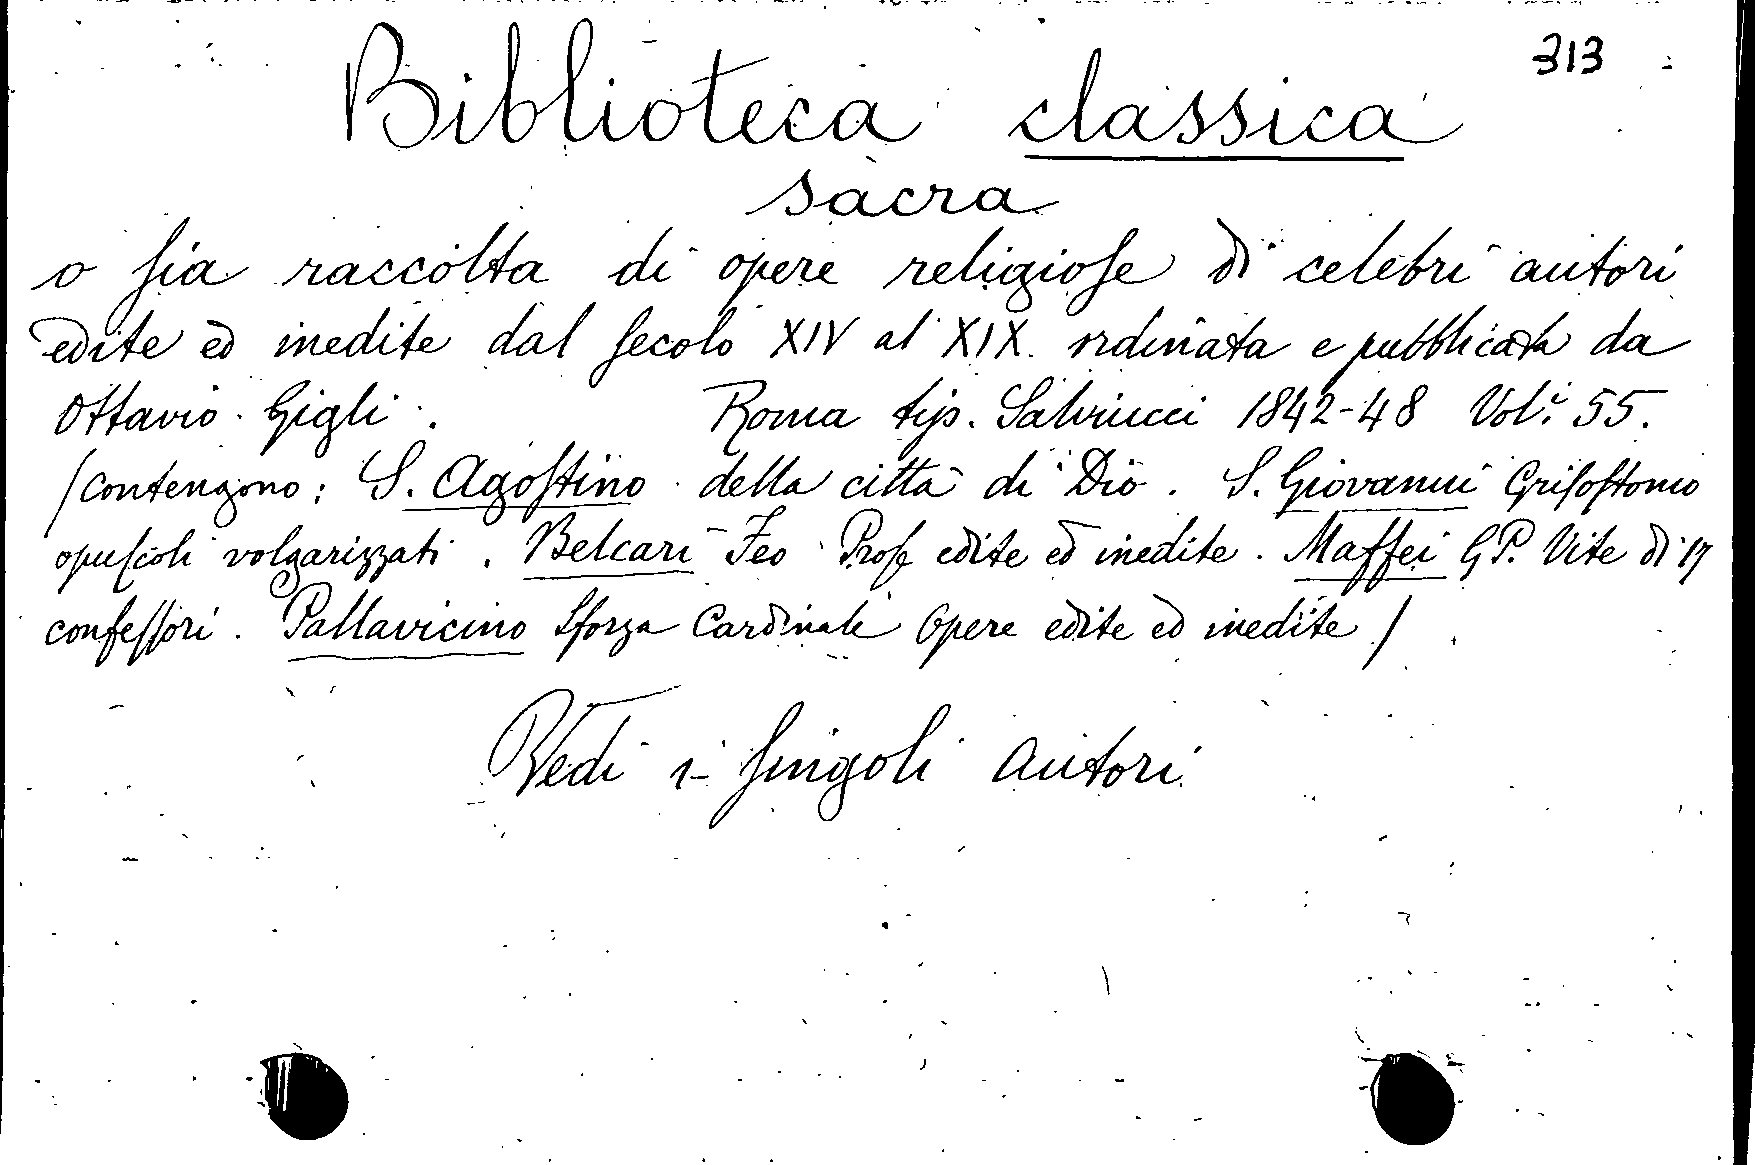 313
Biblioteca classica
sacra
o sia raccolta di opere religiose di celebri autori
edite ed inedite dal secolo XIV al XIX. ordinata e pubblicata da
Ottavio Gigli. Roma tip. Salviucci 1842-48 Vol.i 55.
/contengono: S. Agostino della città di Dio. S. Giovanni Grisostomo
opuscoli volgarizzati. Belcari Feo Prose edite ed inedite. Maffei G P. Vite di 17
confessori. Pallavicino Sforza Cardinale Opere edite ed inedite/
Vedi i singoli autori